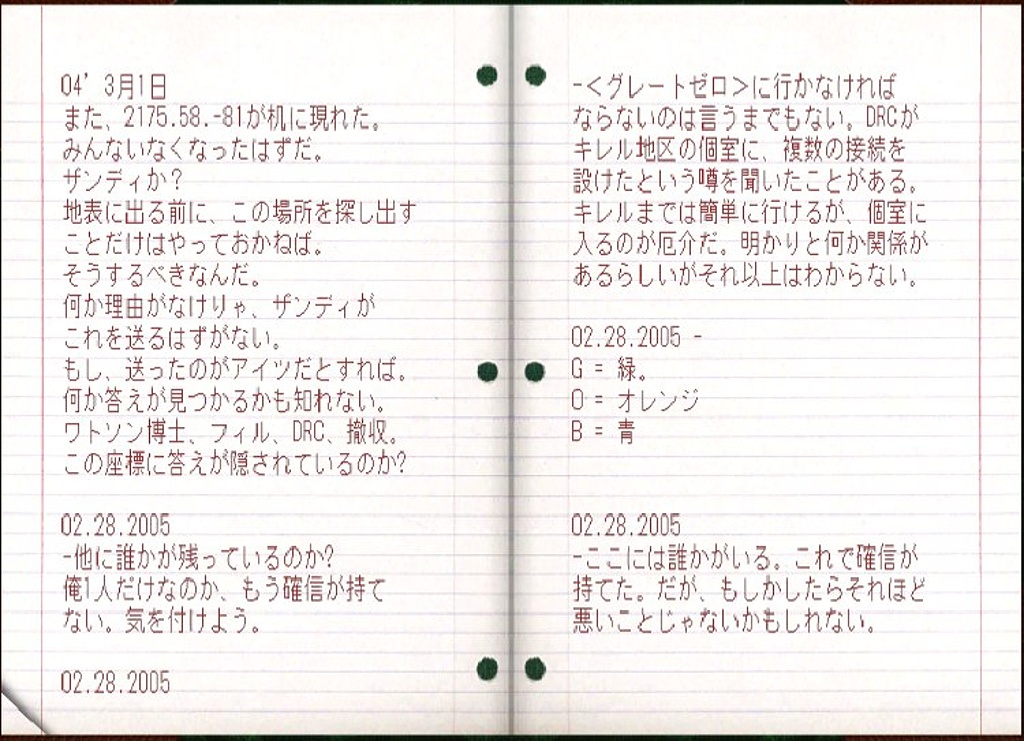 04’ 3月1日
また、2175.58.-81が机に現れた。
みんないなくなったはずだ。
ザンディか？
地表に出る前に、この場所を探し出す
ことだけはやっておかねば。
そうするべきなんだ。
何か理由がなけりゃ、ザンディが
これを送るはずがない。
もし、送ったのがアイツだとすれば。
何か答えが見つかるかも知れない。
ワトソン博士、フィル、DRC、撤収。
この座標に答えが隠されているのか?
02.28.2005
-他に誰かが残っているのか?
俺1人だけなのか、もう確信が持て
ない。気を付けよう。
02.28.2005
-＜グレートゼロ＞に行かなければ
ならないのは言うまでもない。DRCが
キレル地区の個室に、複数の接続を
設けたという噂を聞いたことがある。
キレルまでは簡単に行けるが、個室に
入るのが厄介だ。明かりと何か関係が
あるらしいがそれ以上はわからない。
02.28.2005 -
G = 緑。
O = オレンジ
B = 青
02.28.2005
-ここには誰かがいる。これで確信が
持てた。だが、もしかしたらそれほど
悪いことじゃないかもしれない。